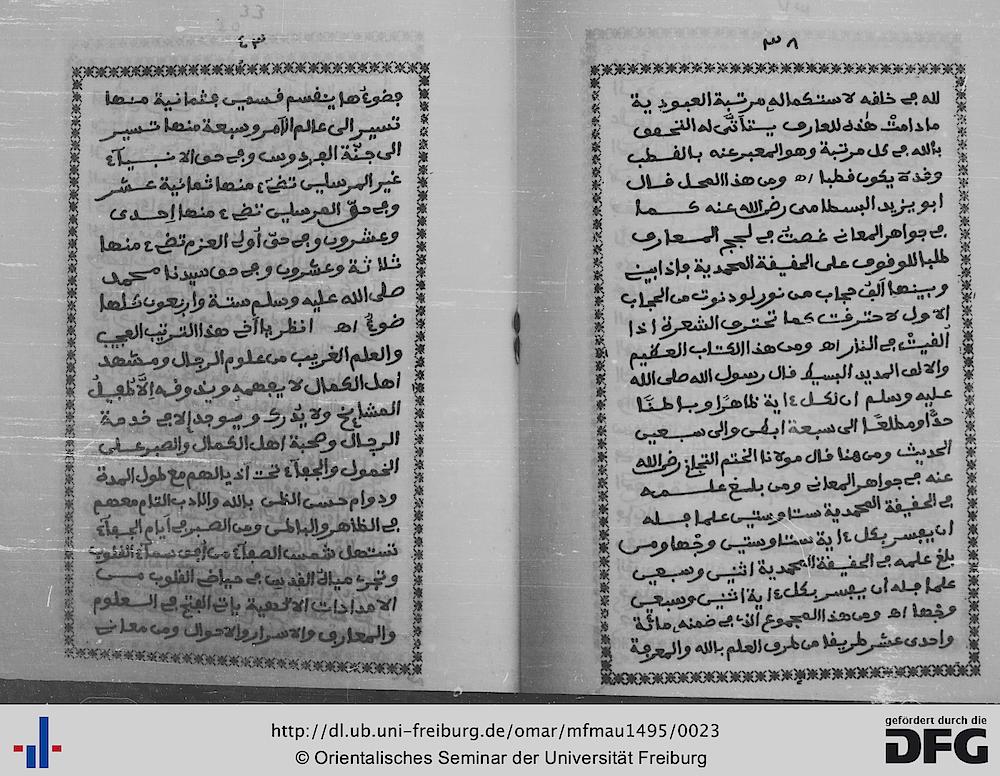 ٣٨
لله في خلقه لاستكماله مرتبة العبودية
مادامت هذه للعارف يتأتى له التحقق
بالله في كل مرتبة وهو المعبر عنه بالقطب
وقد لا يكون قطبا اھ ومن هذا المحل قال
ابو يزيد البسطامي رضي الله عنه كما
في جواهر المعاني غصت في لجج المعارف
طلبا للوقوف على الحقيقة المحمدية فإذا بيني
وبينها ألف حجاب من نور لو دنوت من الحجاب
الاول لاحترقت كما تحترق الشعرة اذا
ألقيت في النار اھ ومن هذا الكتاب العظيم
والالف المديد البسيط قال رسول الله صلى الله
عليه وسلم ان لكل ءاية ظاهرا وباطنا
حدا ومطلعا الى سبعة ابطن والى سبعين
الحديث ومن هنا قال مولانا الختم التجاني رضي الله
عنه في جواهر المعاني ومن بلغ علمه
في الحقيقة المحمدية ستا وستين علما فله
ان يفسر بكل ءاية ستا وستين وجها ومن
بلغ علمه في الحقيقة المحمدية اثنين وسبعين
علما فله أن يفسر بكل ءاية اثنين وسبعين
وجها اھ ومن هذا المجموع الذي في ضمنه مائة
واحدى عشر طريقا من طرق العلم بالله والمعرفة
٤٣
فضوءها ينقسم قسمين فثمانية منها
تسير الى عالم الأمر وسبعة منها تسير
الى جنة الفردوس وفي حق الانبياء
غير المرسلين تضيء منها ثمانية عشر
وفي حق المرسلين تضيء منها إحدى
وعشرون وفي حق أولي العزم تضيء منها
ثلاثة وعشرون وفي حق سيدنا محمد
صلى الله عليه وسلم ستة وأربعون كلها
ضوء اھ انظر يا أخي هذا الترتيب العجيب
والعلم الغريب من علوم الرجال ومشهد
اهل الكمال لا يفهمه ويذوقه إلا طفيل
المشايخ ولا يدرك ويوجد إلا في خدمة
الرجال وصحبة اهل الكمال والصبر على
الخمول والجفاء تحت أذيالهم مع طول المدة
ودوام حسن الظن بالله والادب التام معهم
في الظاهر والباطن ومن الصبر في أيام الجفاء
تستهل شمس الصفاء من أفق سماء القلوب
وتجري مياه القدس في حياض القلوب من
الامدادات الالهية بان الفتح في العلوم
والمعارف والاسرار والاحوال ومن معاني
http://dl.ub.uni-freiburg.de/omar/mfmau1495/0023
© Orientalisches Seminar der Universität Freiburg
gefördert durch die
DFG